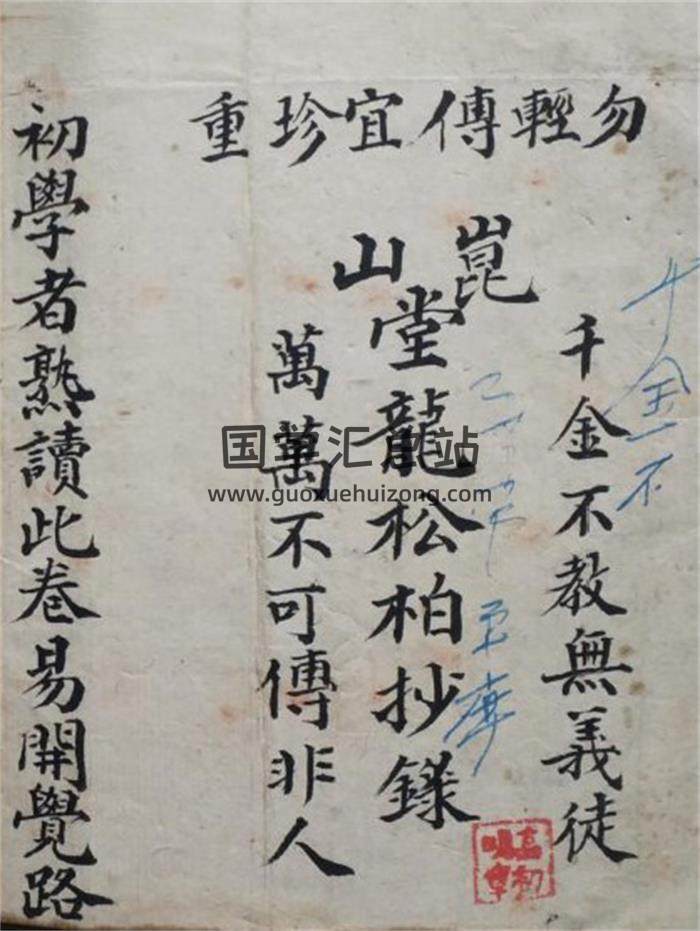 勿輕傳宜珍重
千金不教無義徒
崑山
堂龍松柏抄錄
萬萬不可傳非人
初學者熟讀此卷易開覺路
千金不
国学汇总站
www.guoxuehuizong.com